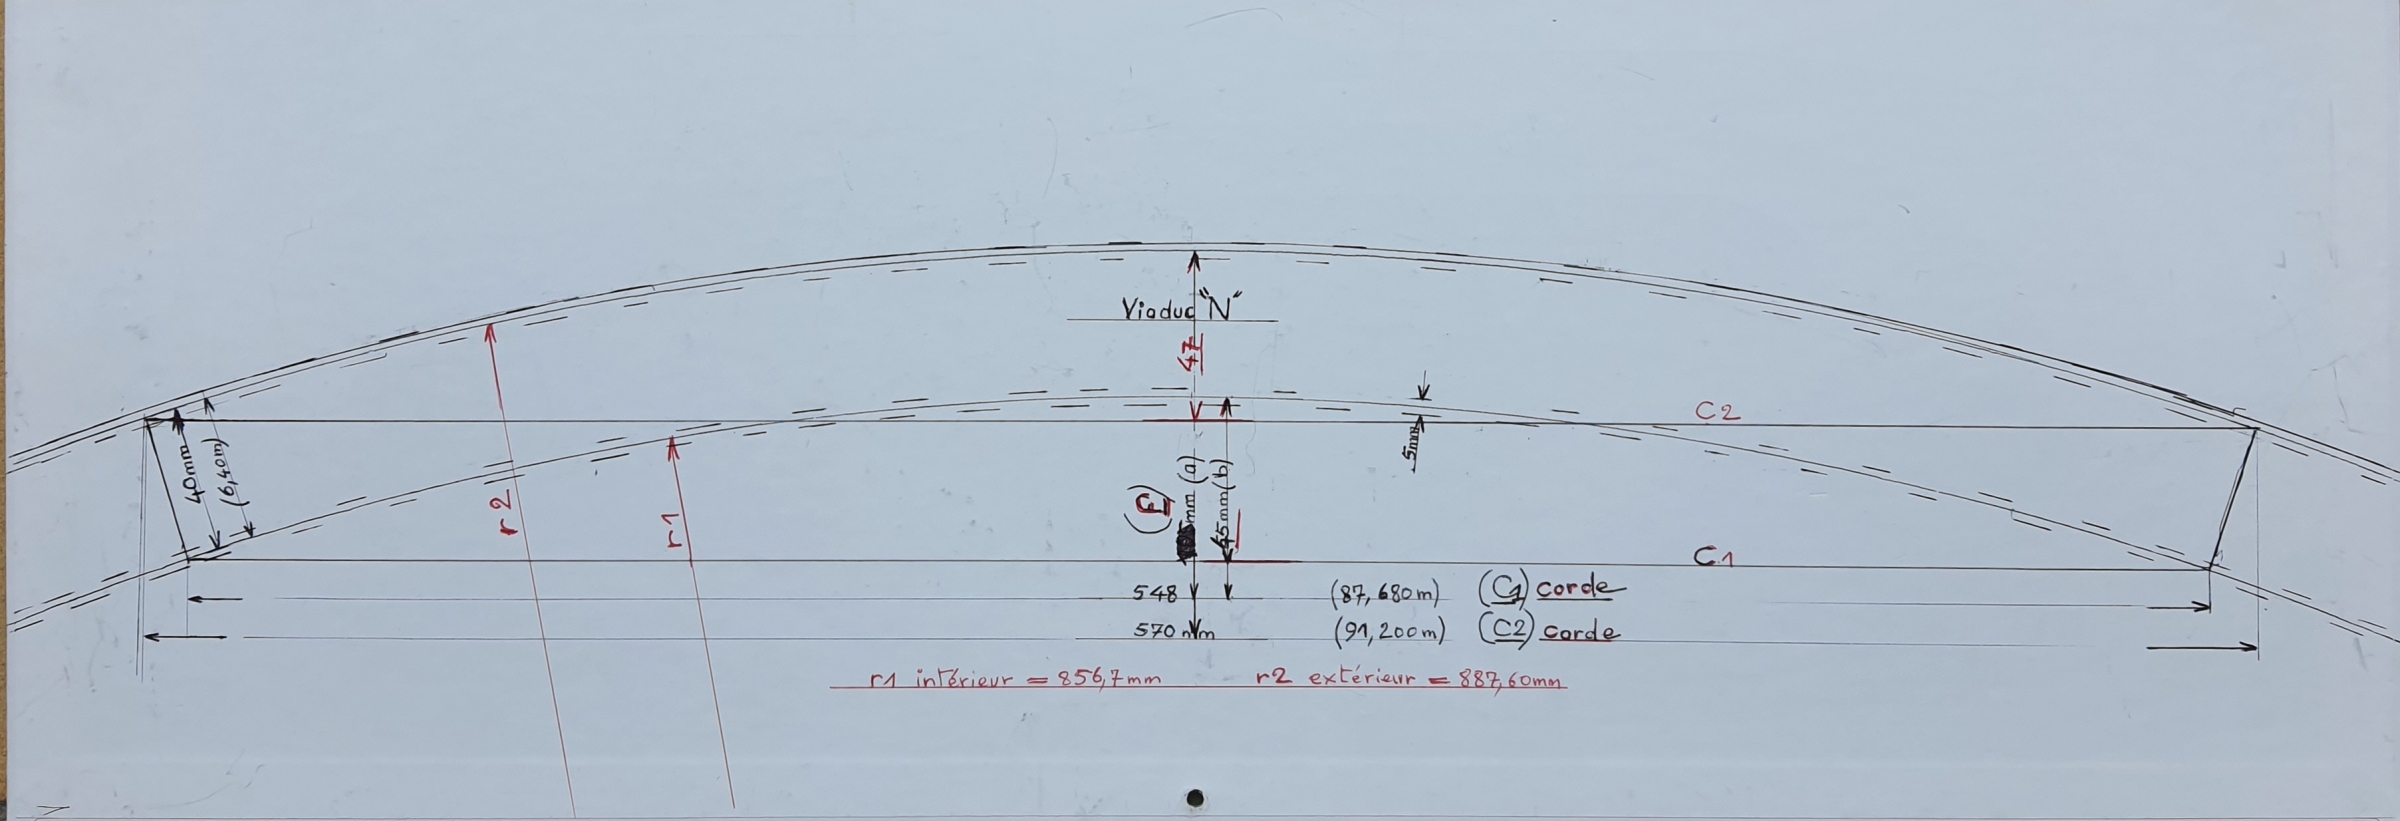 Viaduc "N"
47
C2
40mm
(6,40m)
5mm
r2
r1
(F)
mm (a)
45mm(b)
C1
548 (87,680m) (C1) corde
570 mm (91,200m) (C2) corde
r1 intérieur = 856,7mm r2 extérieur = 887,60mm